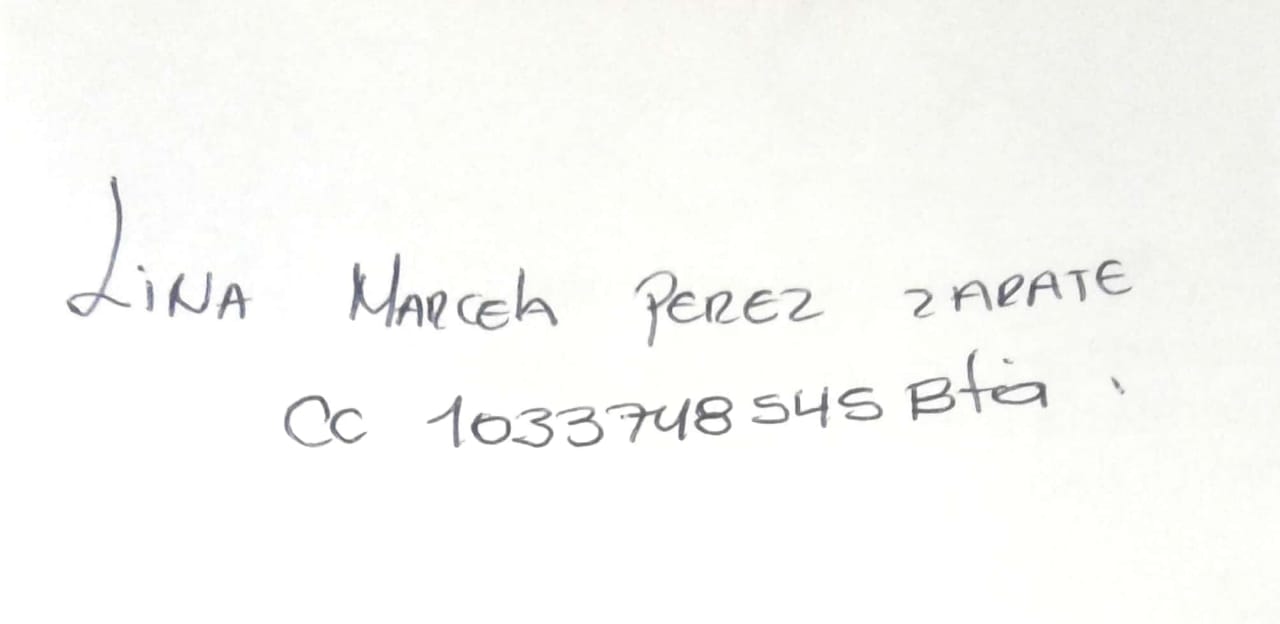 LiNA MARCELA PEREZ ZARATE
CC 1033748545 Bta